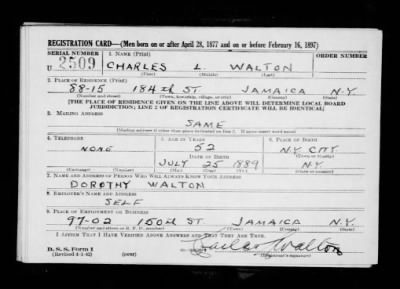 REGISTRATION CARD—(Men born on or after April 28, 1877 and on or before February 16, 1897)
SERIAL NUMBER 1. NAME (Print) ORDER NUMBER
U 2509 CHARLES L. WALTON
(First) (Middle) (Last)
2. PLACE OF RESIDENCE (Print)
88-15 184th ST JAMAICA N.Y.
(Number and street) (Town, township, village, or city) (County) (State)
[THE PLACE OF RESIDENCE GIVEN ON THE LINE ABOVE WILL DETERMINE LOCAL BOARD
JURISDICTION; LINE 2 OF REGISTRATION CERTIFICATE WILL BE IDENTICAL]
3. MAILING ADDRESS
SAME
[Mailing address if other than place indicated on line 2. If same insert word same]
4. TELEPHONE 5. AGE IN YEARS 6. PLACE OF BIRTH
NONE 52 N.Y. CITY
DATE OF BIRTH (Town or county)
JULY 25 1889 N.Y.
(Exchange) (Number) (Mo.) (Day) (Yr.) (State or country)
7. NAME AND ADDRESS OF PERSON WHO WILL ALWAYS KNOW YOUR ADDRESS
DOROTHY WALTON
8. EMPLOYER'S NAME AND ADDRESS
SELF
9. PLACE OF EMPLOYMENT OR BUSINESS
97-02 150th ST JAMAICA N.Y.
(Number and street or R. F. D. number) (Town) (County) (State)
I AFFIRM THAT I HAVE VERIFIED ABOVE ANSWERS AND THAT THEY ARE TRUE.
D. S. S. Form 1 Charles Walton
(Revised 4-1-42) (over) (Registrant's signature)